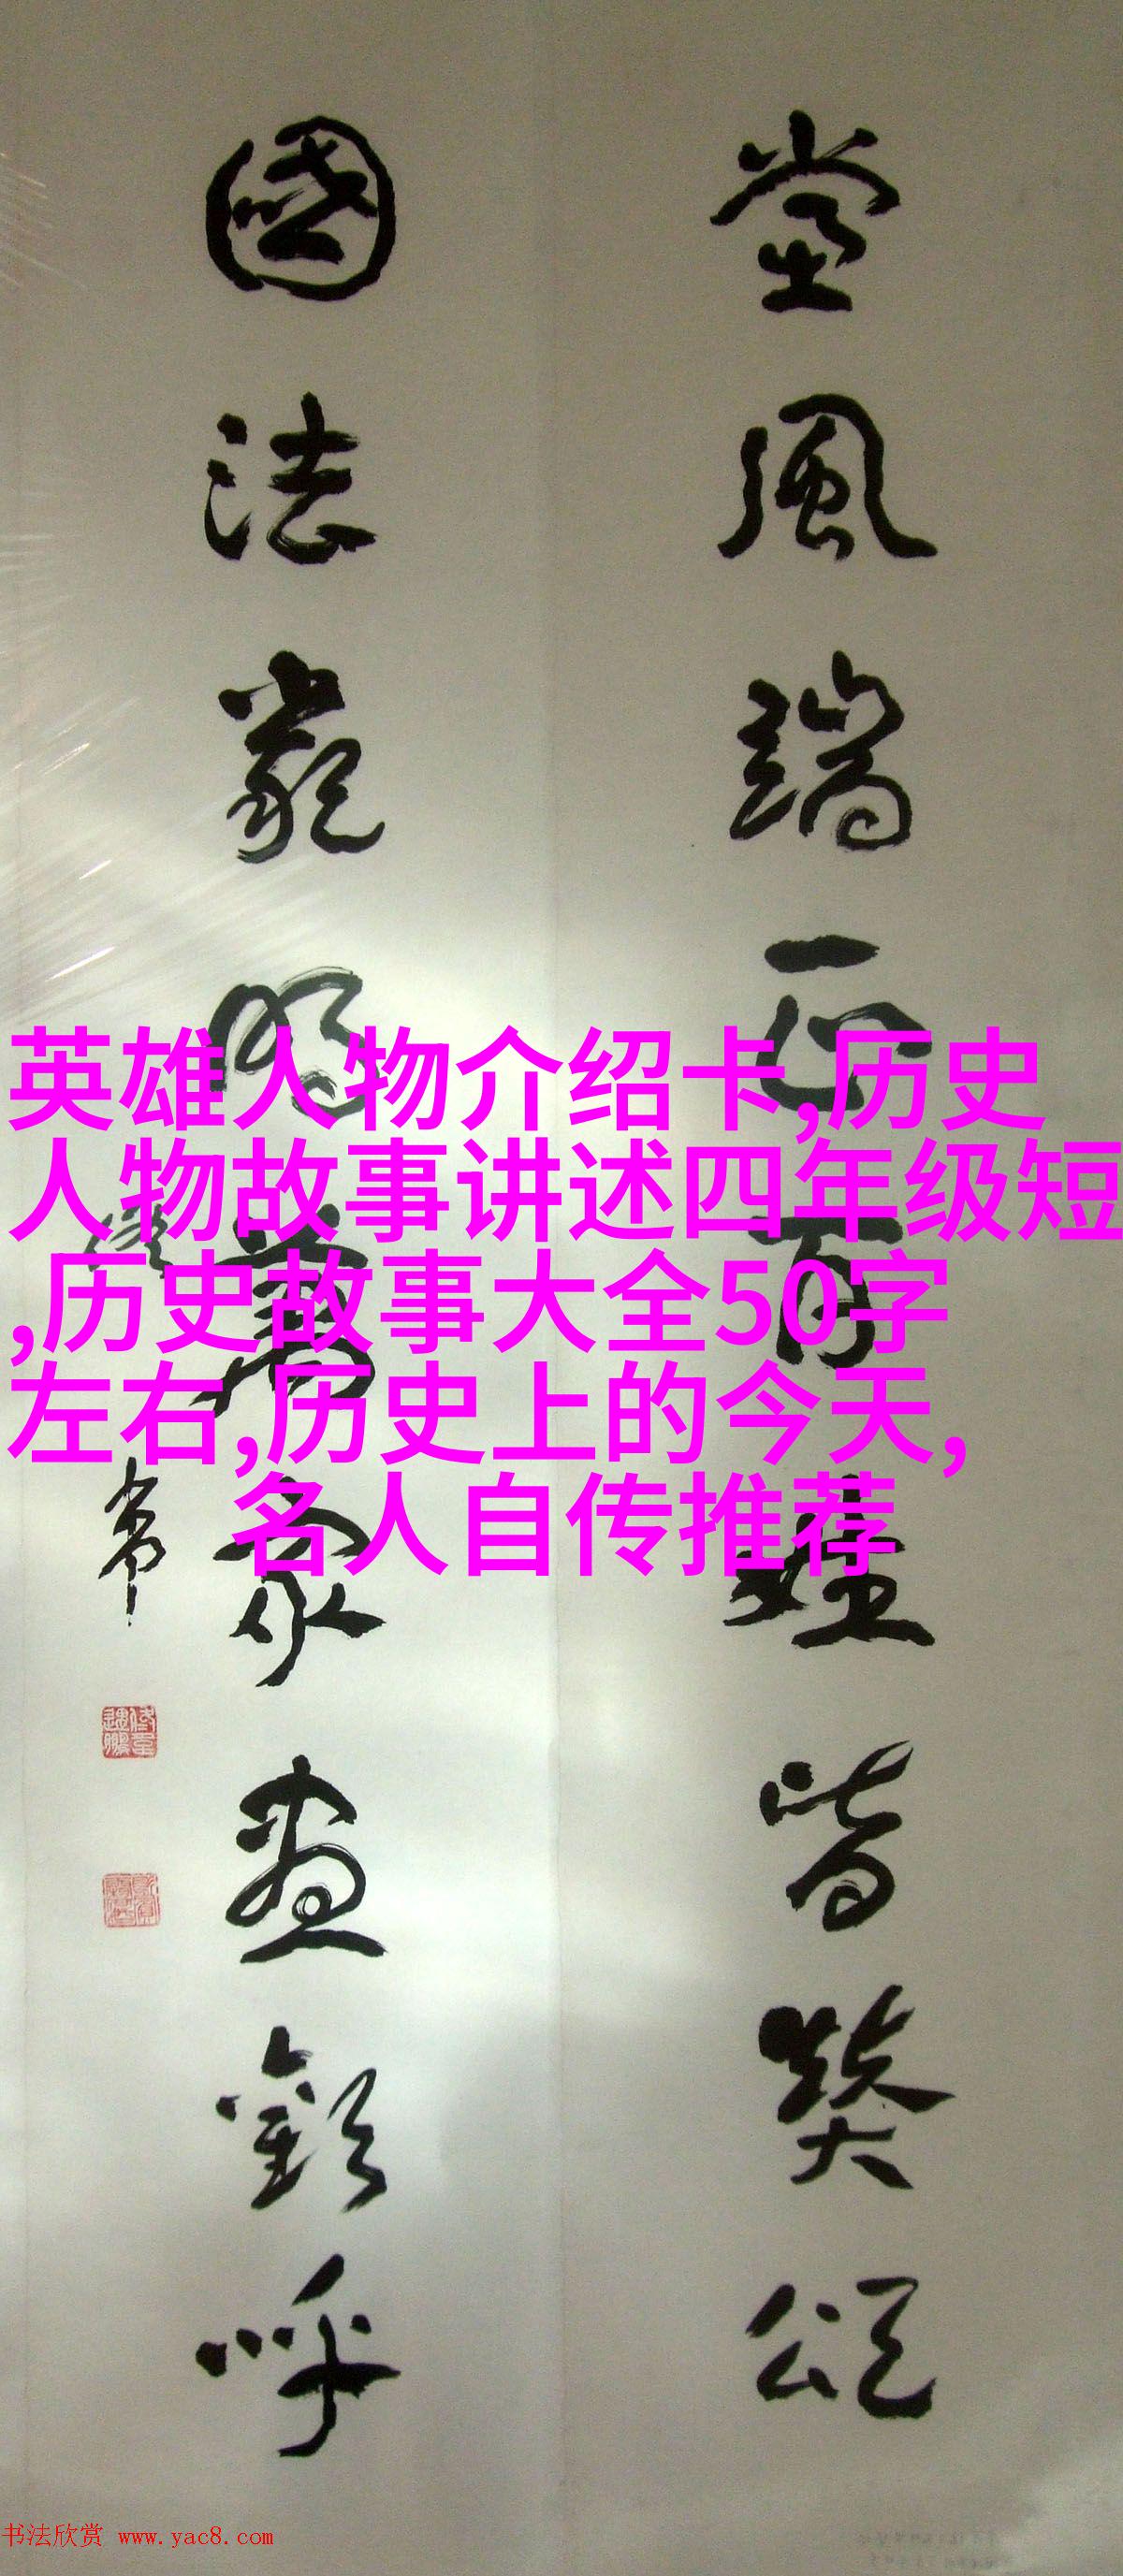 黨風端正百姓皆頌
國法嚴明萬家盡歡呼
英雄人物介绍卡,历史
人物故事讲述四年级短
,历史故事大全50字
左右,历史上的今天,
名人自传推荐
书法欣赏 www.yac8.com